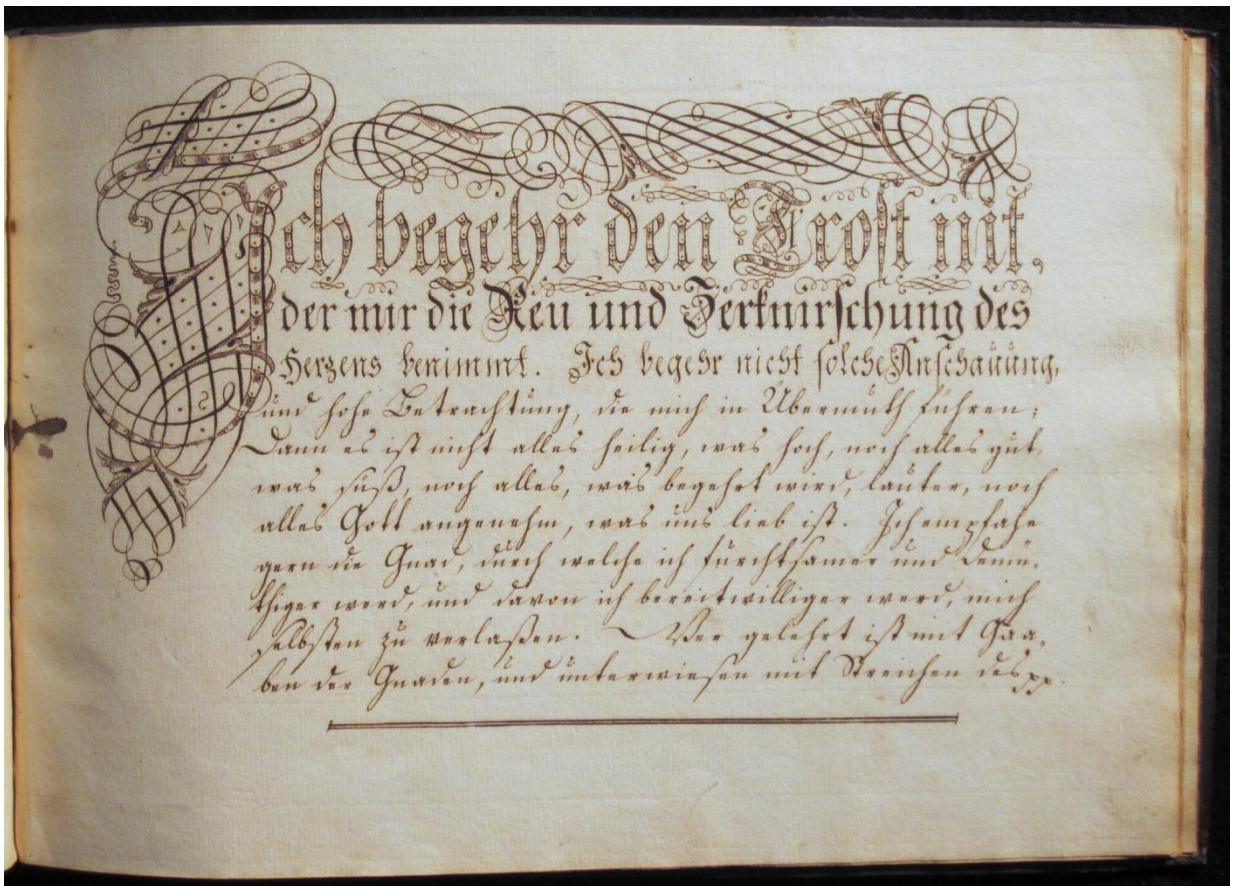 Ich begehr den Trost nit,
der mir die Reu und Zerknirschung des
Herzens benimmt. Ich begehr nicht solche Anschauung,
und hohe Betrachtung, die mich in Übermuth führen;
Dann es ist nicht alles heilig, was hoch, noch alles gut,
was süß, noch alles, was begehrt wird, lauter, noch
alles Gott angenehm, was uns lieb ist. Ich empfahe
gern die Gnad, durch welche ich fürchtsamer und demü-
thiger werd, und davon ich bereitwilliger werd, mich
selbsten zu verlaßen. Wer gelehrt ist mit Gaa-
ben der Gnaden, und unterwiesen mit Streichen des pp.